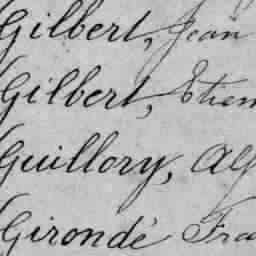 Gilbert, Jean
Gilbert, Etien
Guillory, Alf
Girondé Fra